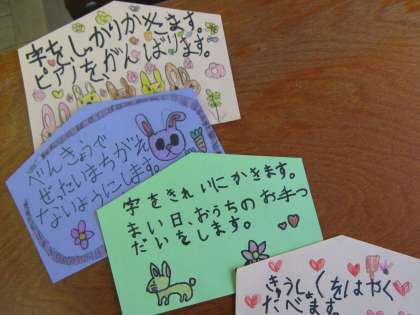 字をしっかりかきます。
ピアノを、がんばります。
べんきょうで
ぜったいまちがえ
ないようにします。
字をきれいにかきます。
まい日、おうちのお手つ
だいをします。
きゅうしょくをはやく
たべます。